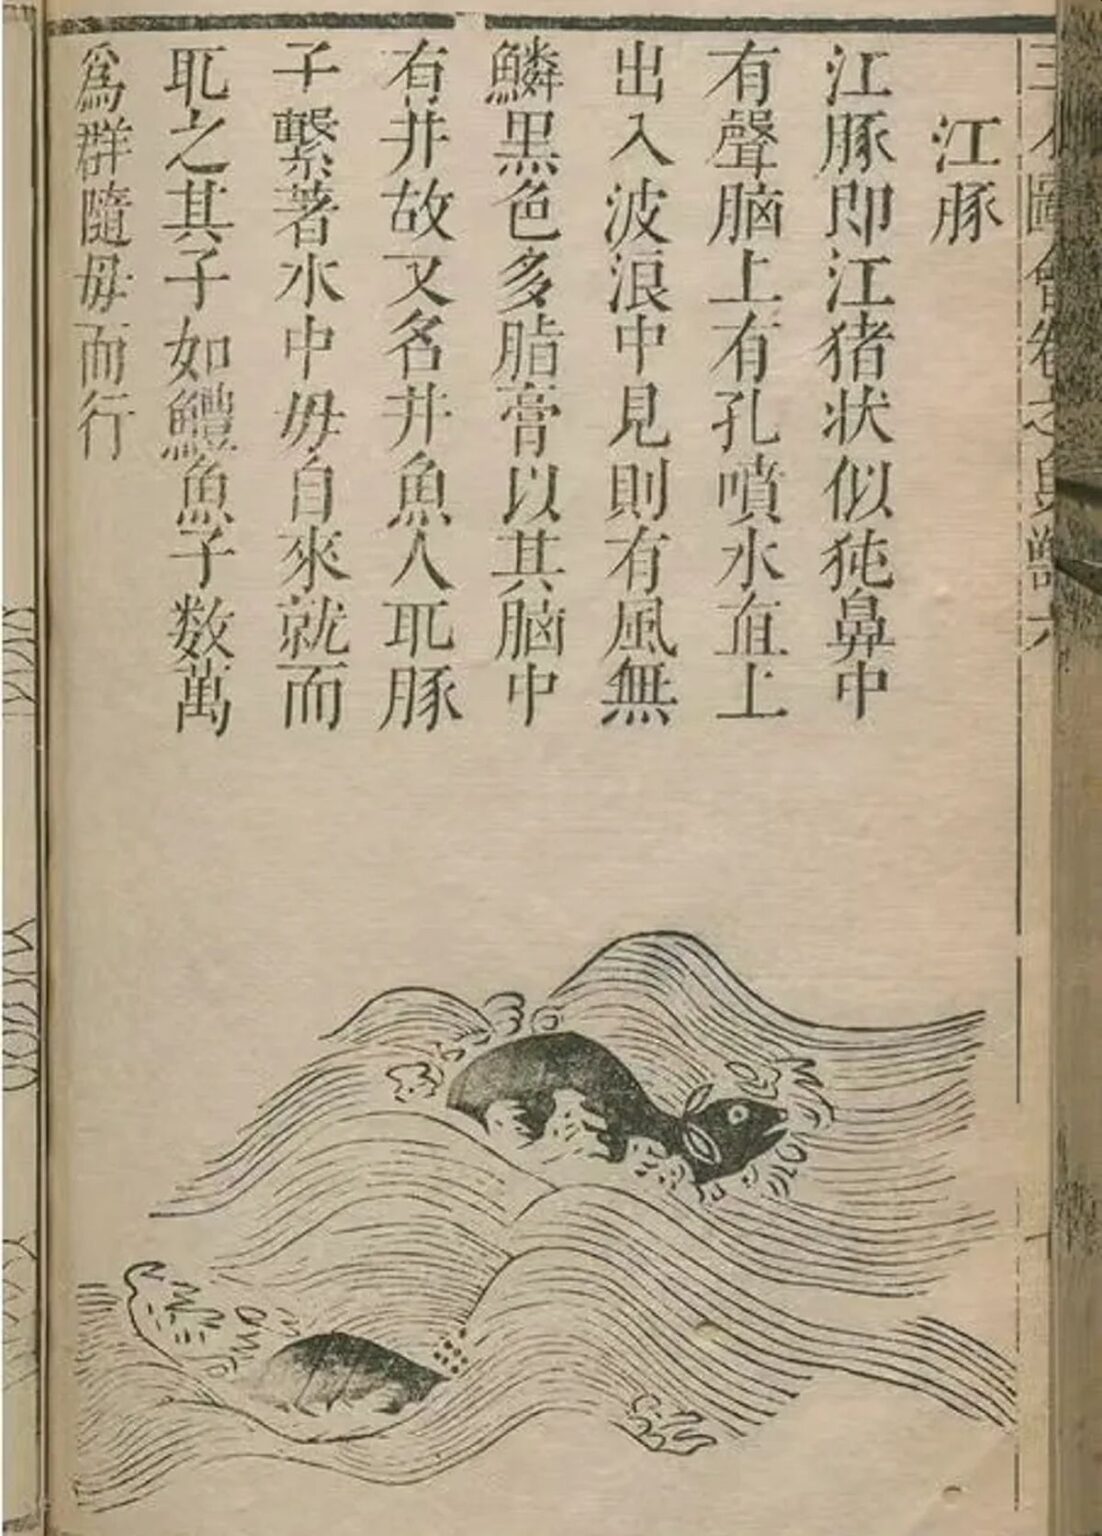 三才圖會卷之鳥獸六
江豚
江豚即江猪状似㹠鼻中
有聲脑上有孔噴水直上
出入波浪中見則有風無
鱗黒色多脂膏以其脑中
有井故又名井魚人取豚
子繫著水中毋自來就而
取之其子如鱧魚子数萬
為群隨毋而行